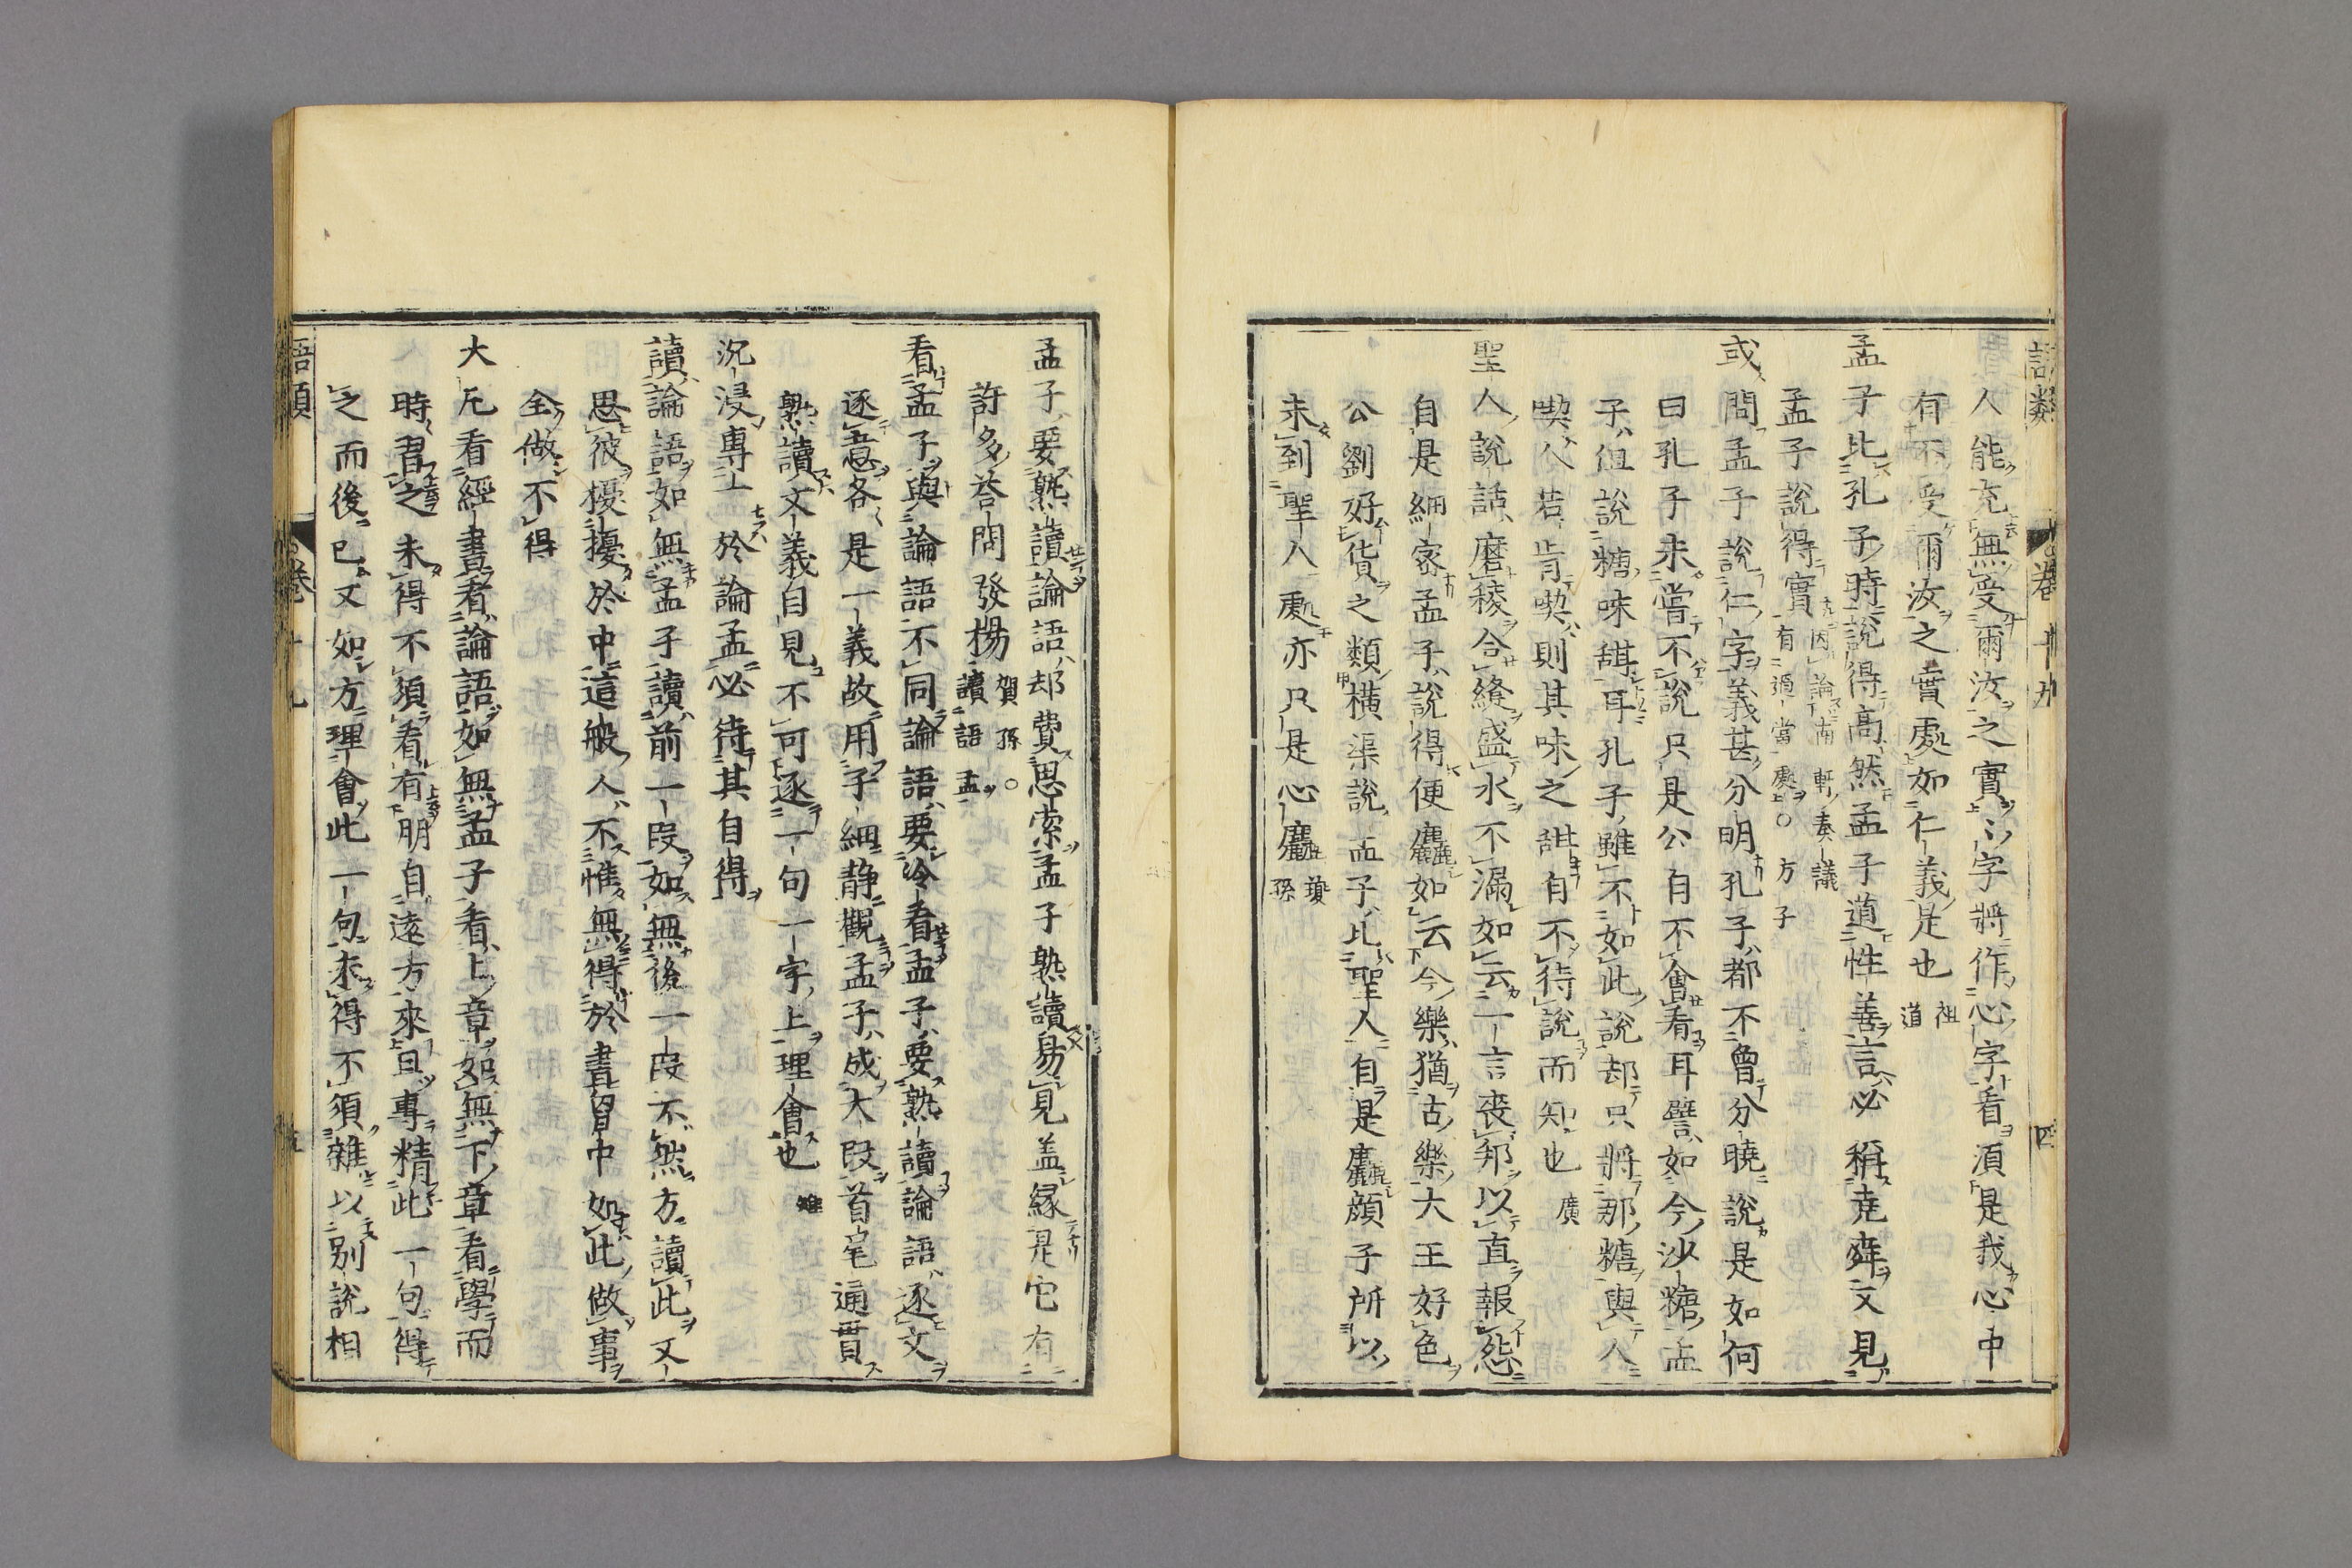 語類 卷十九 四
人能充無受爾汝之實〻字將作心字看須是我心中
有不受爾汝之實處如仁義是也 祖道
孟子比孔子時說得高然孟子道性善言必稱堯舜又見
孟子說得實 因論南軒奏議有過當處○方子
或問孟子說仁字義甚分明孔子都不曾分曉說是如何
曰孔子未嘗不說只是公自不會看耳譬如今沙糖孟
子但說糖味甜耳孔子雖不如此說却只將那糖與人
喫人若肯喫則其味之甜自不待說而知也 廣
聖人說話磨稜合縫盛水不漏如云一言喪邦以直報怨
自是細密孟子說得便麤如云今樂猶古樂大王好色
公劉好貨之類橫渠說孟子比聖人自是麤顔子所以
未到聖人處亦只是心麤 夔孫
孟子要熟讀論語却費思索孟子熟讀易見盖縁是它有
許多荅問發揚 賀孫○讀語孟
看孟子與論語不同論語要冷看孟子要熟讀論語逐文
逐意各是一義故用子細静觀孟子成大段首尾通貫
熟讀文義自見不可逐一句一字上理會也 雉
沉浸專一於論孟必待其自得
讀論語如無孟子讀前一段如無後一段不然方讀此又
思彼擾擾於中這般人不惟無得於書胷中如此做事
全做不得
大凡看經書看論語如無孟子看上章如無下章看學而
時習之未得不須看有朋自遠方來且專精此一句得
之而後已又如方理會此一句未得不須雜以别說相
語類 卷十九 五